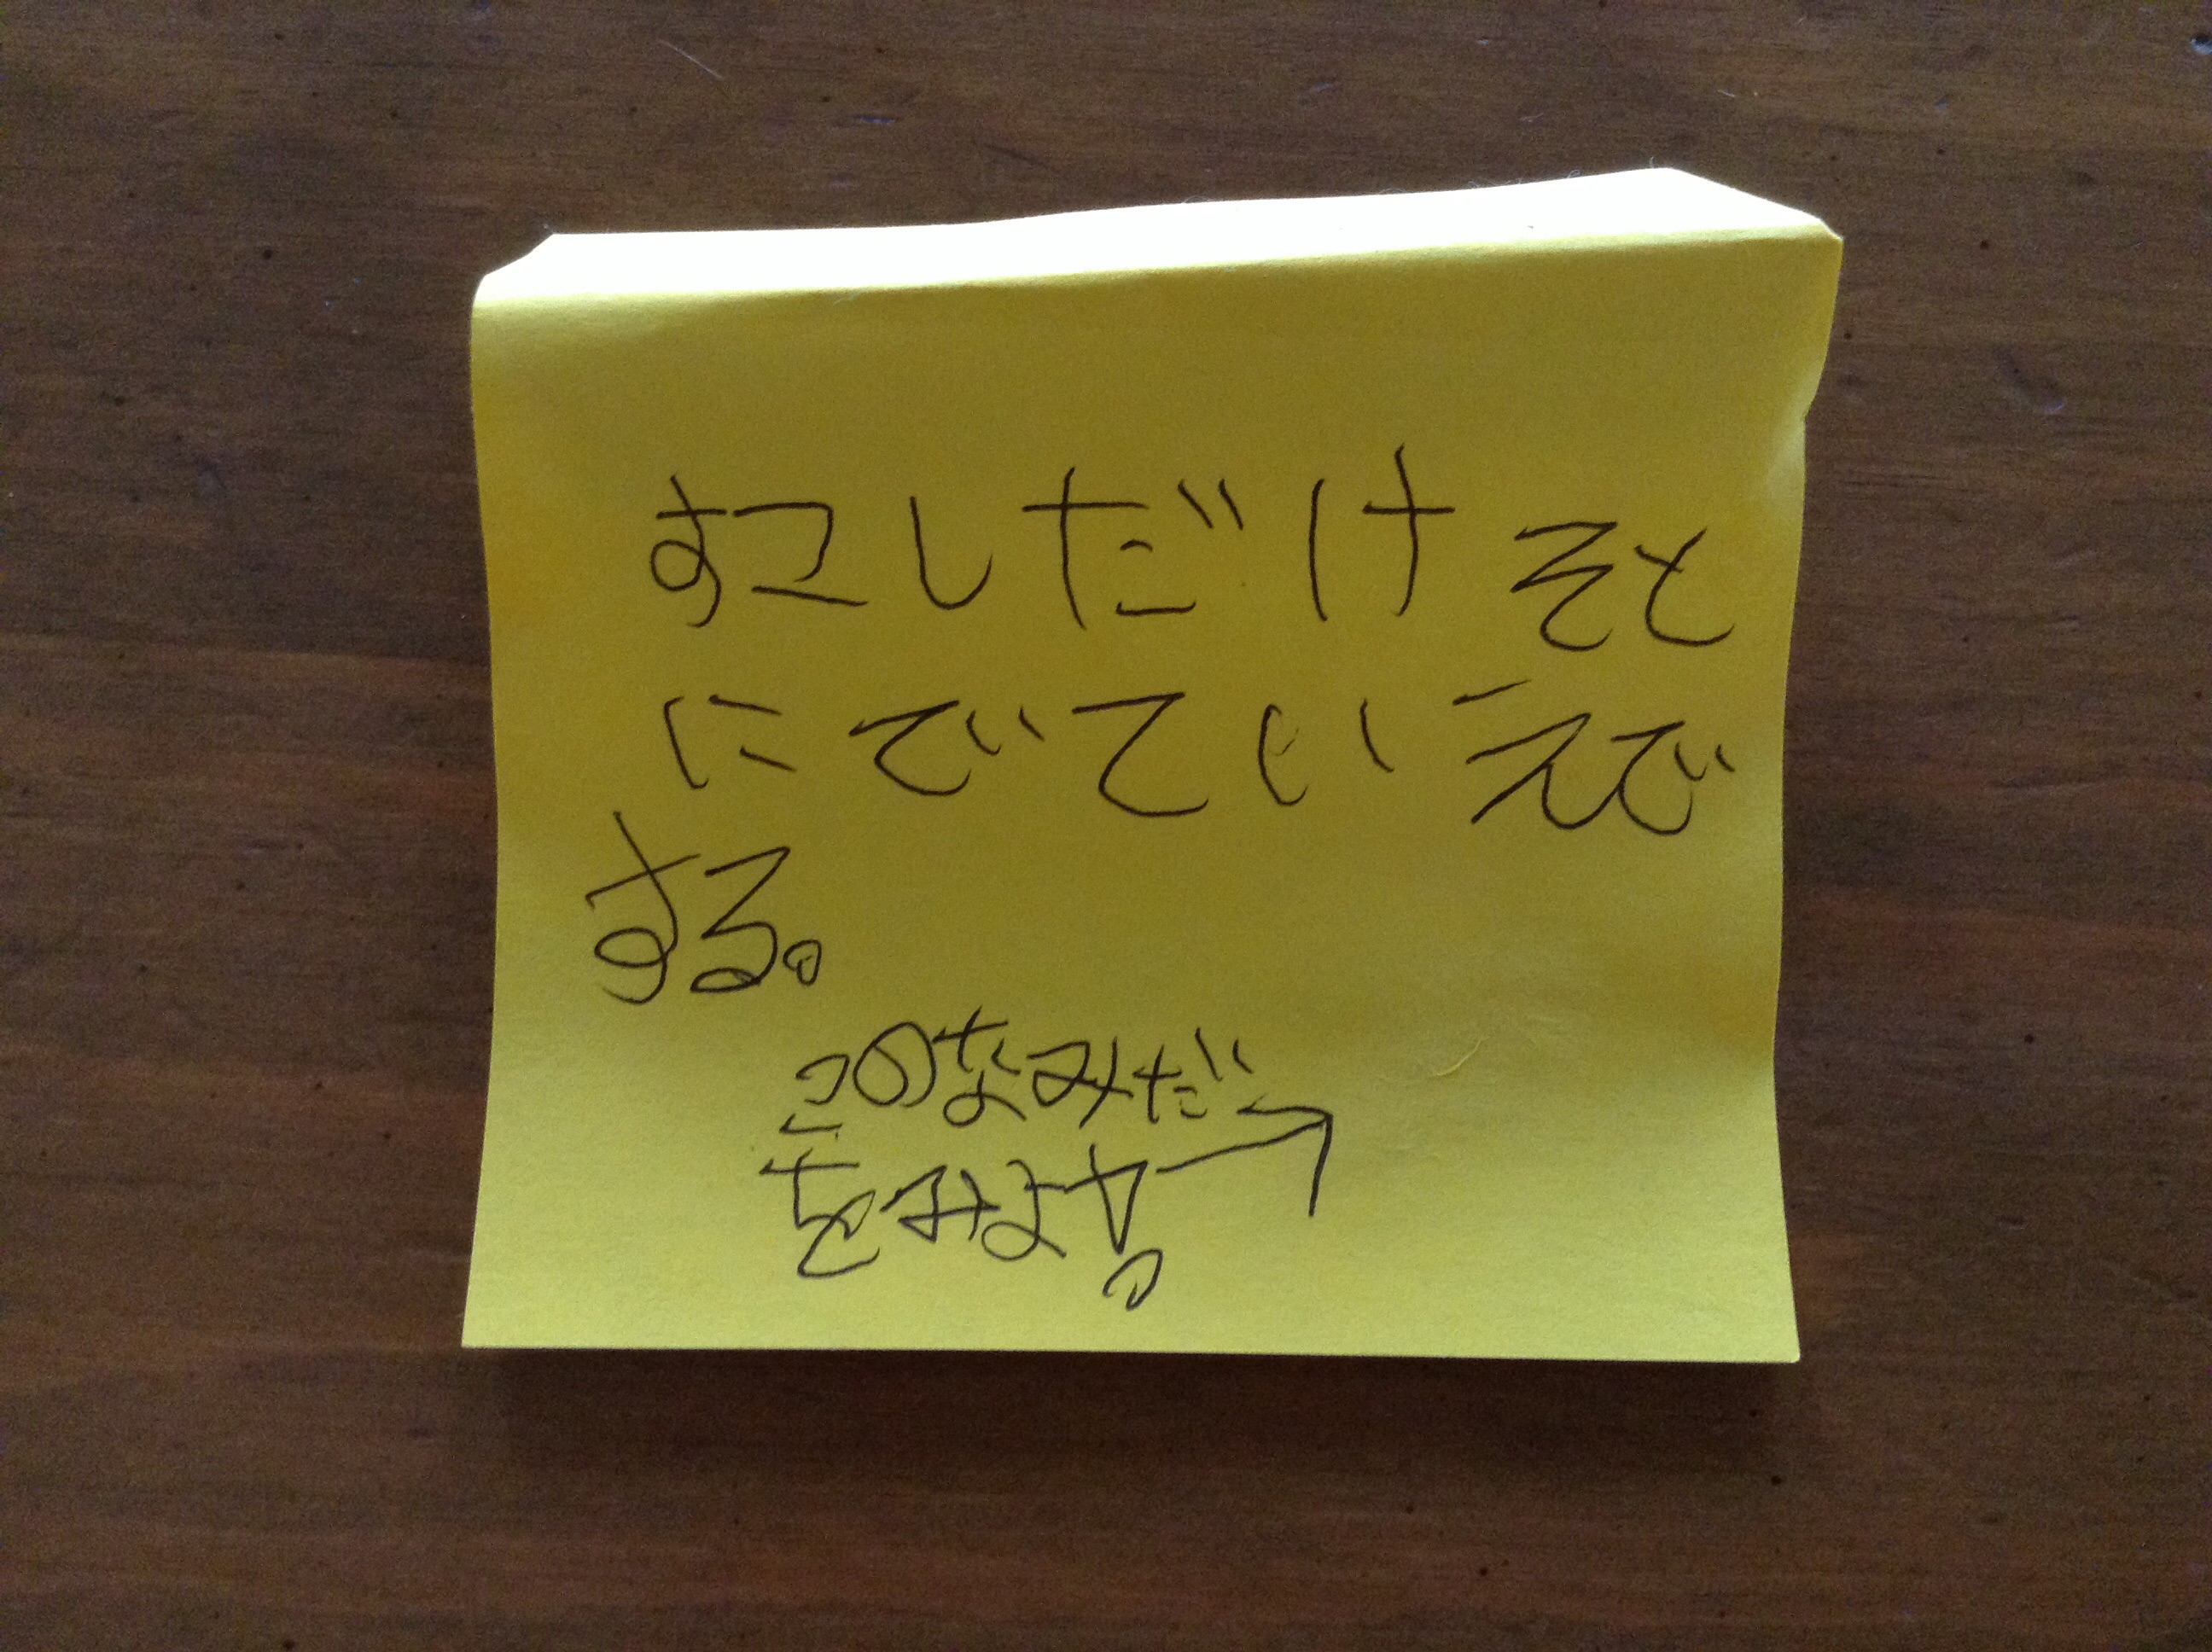 すこしだけ そと
にでて いえで
する。
このなみだ
をみよや。